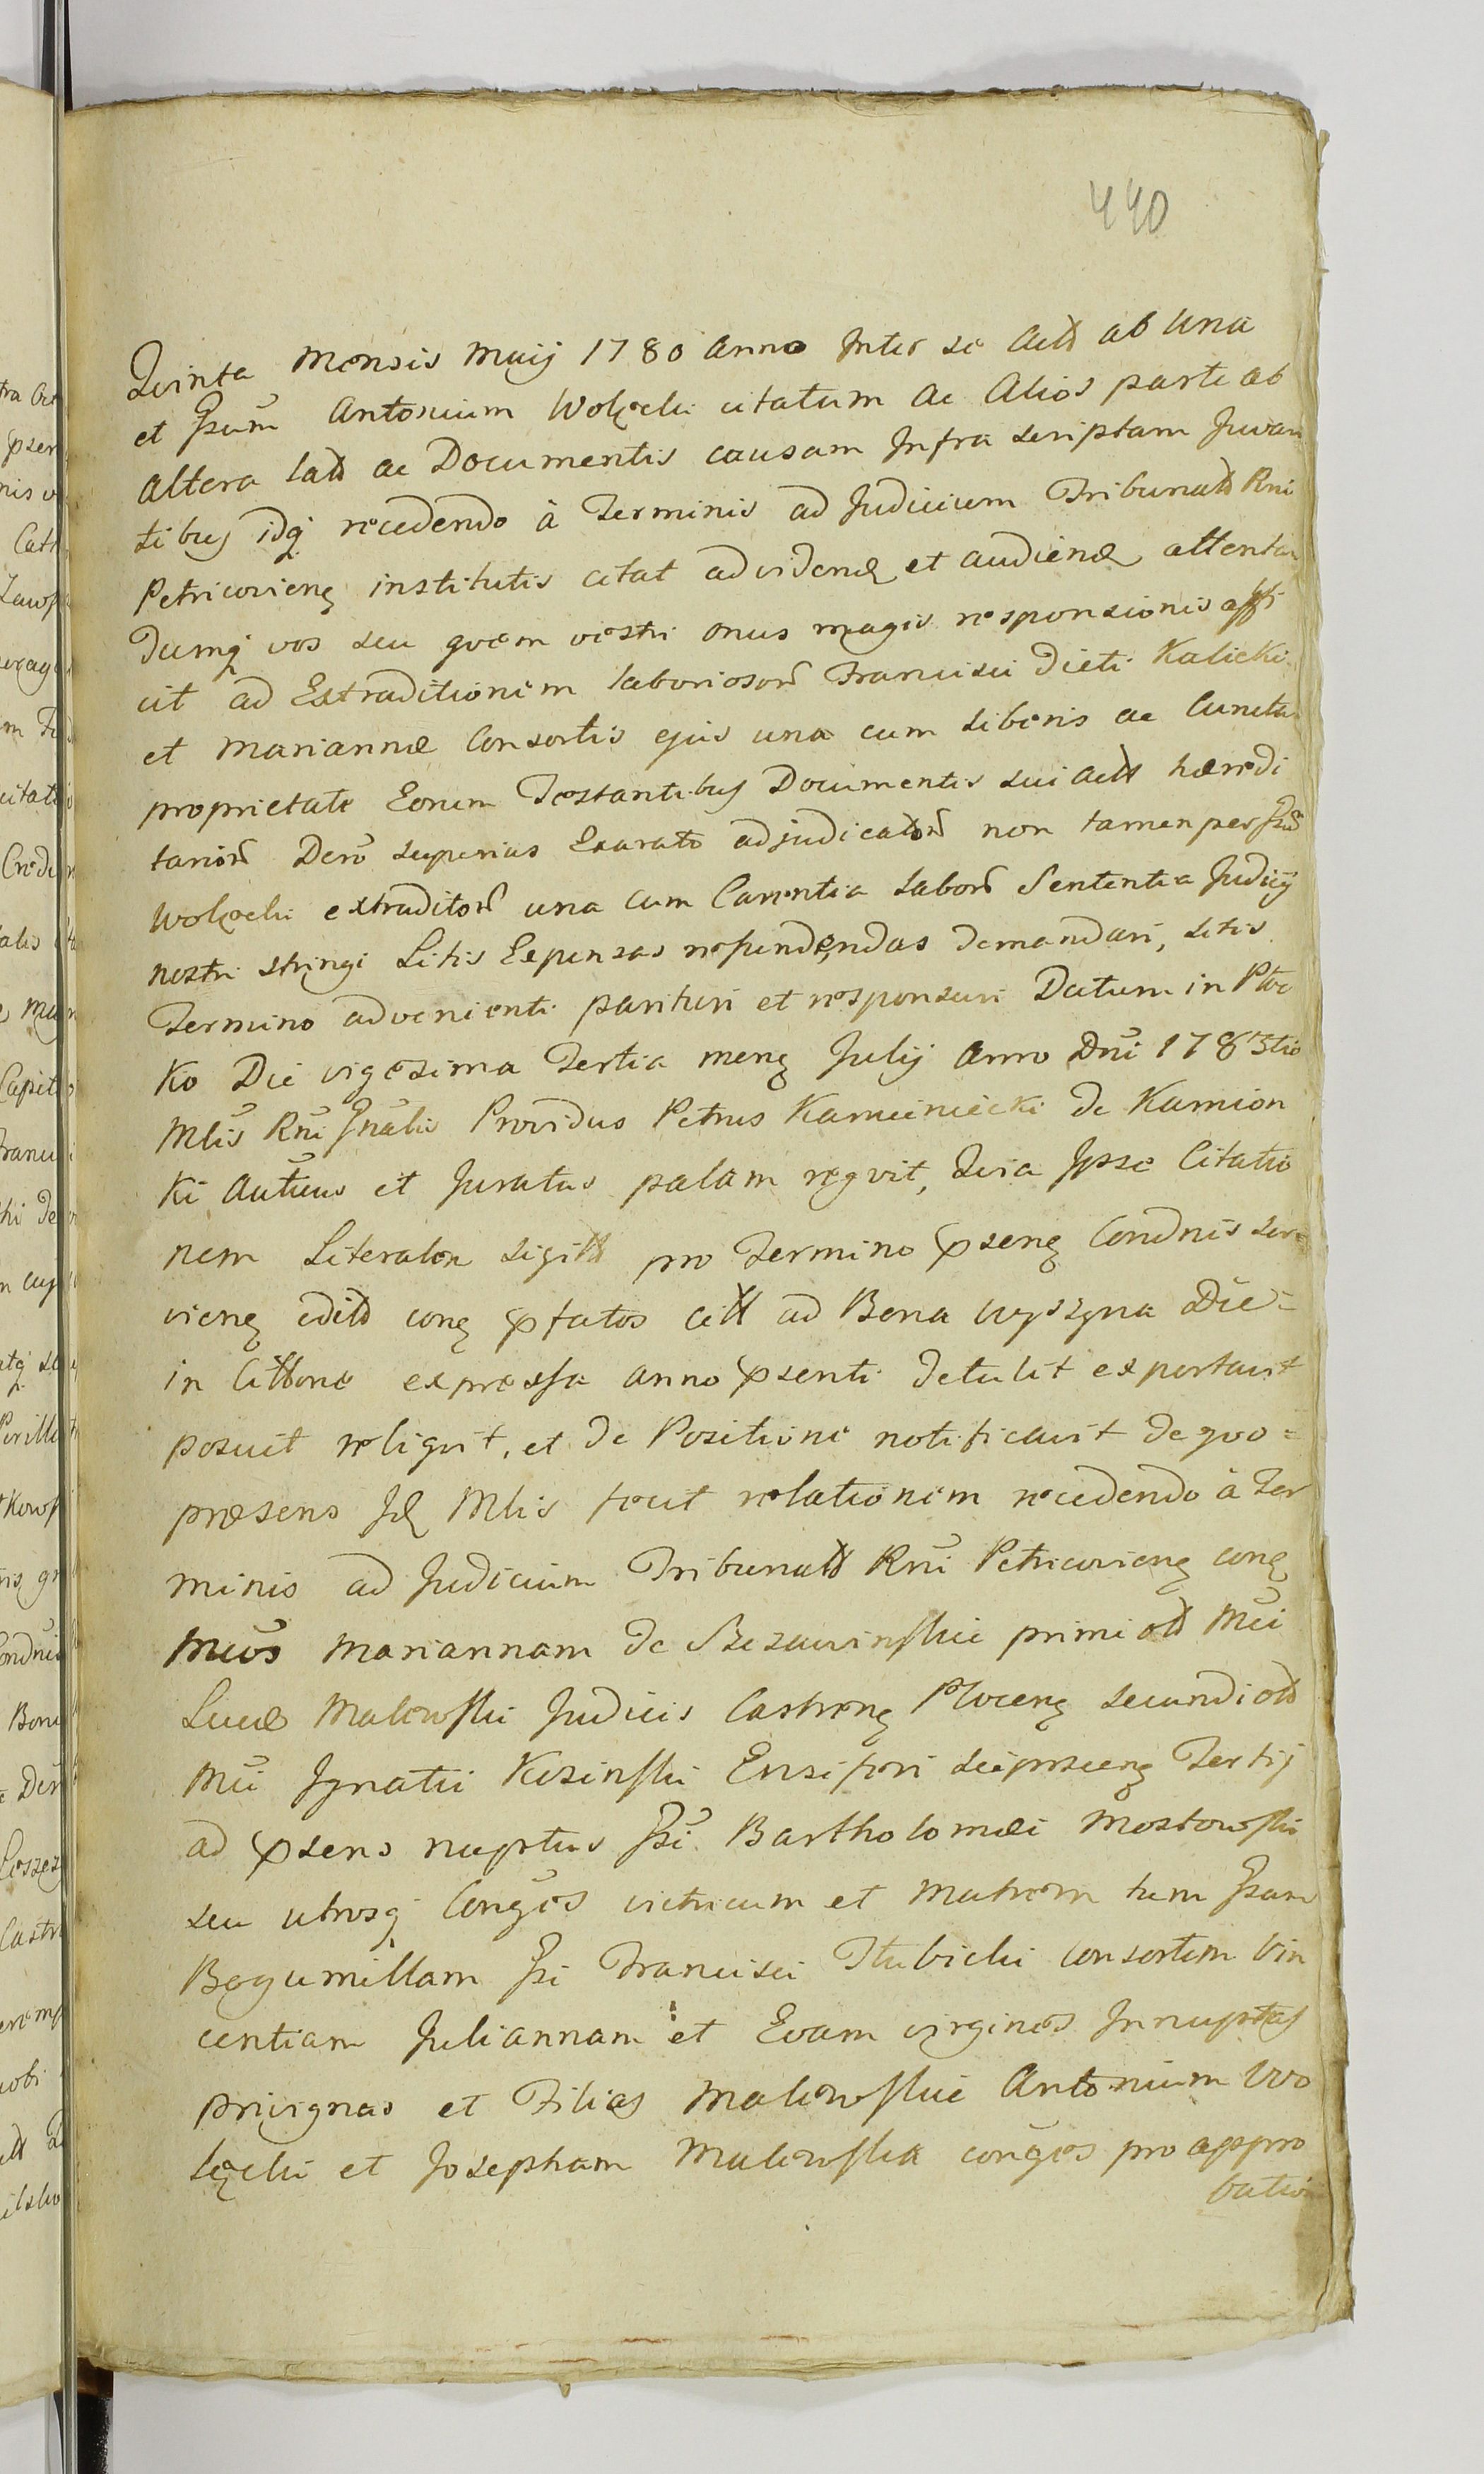 440
Qvinta Mensis Maij 1780 Anno Inter se Actt ab Una
et Gsum Antonium Wolęcki citatum ac Alios parte ab
altera latt ac Documentis causam Infra scriptam Juvan
tibus idq recedendo à Terminis ad Judicium Tribunatt Rni
Petricovien institutis citat ad videnđ et audienđ attentan
dumq vos seu qvem vestri onus magis responsionis affi
cit ad Extraditionem laboriosorum Francisci Dicti Kalicki
et Mariannæ Consortis ejus una cum Liberis ac Cuncta
proprietate Eorum Testantibus Documentis sui Actt hæredi
tariorum Dero superius Exarato adjudicatorum non tamen per Gsum
Wolęcki extraditorum una cum Carentia Laborum Sententia Judicij
nostri stringi Litis Expensas rependendas demandari, sitis
Termino advenienti parituri et responsuri Datum in Płoc
ko Die vigesima Tertia menş Julij Anno Dni 1783tio
Mlis Rni Gnalis Providus Petrus Kamieniecki de Kamion
ki Autcus et Juratus palam regvit, Qvia Ipse Citatio
nem Literalem Sigitt pro Termino psenş Condnis ser=
vienş editt conş pfatos citt ad Bona Wyszyna Die=
in Cittone expressa anno psenti detulit exportavit
posuit reliqvit, et de Positione notificavit de qvo=
præsens Id Mlis fecit relationem recedendo à Ter
minis ad Judicium Tribunatt Rni Petricovienş conş
Mcos Mariannam de Szczawinskie primi ott Mci
Lucæ Malewski Judicis Castrenş Plocenş secundi ott
Mci Ignatii Kosinski Ensiferi Sierpscenş Tertij
ad psens nuptus Gsi Bartholomæi Mostowski
seu utrosq Conges victricum et Matrem tum Gsam
Bogumillam Gsi Francisci Tłubicki consortem Vin
centiam Juliannam et Evam virgines Innuptas
privignas et Filias Malewskie Antonium Wo
lęcki et Josepham Malewska conges pro appro
batio